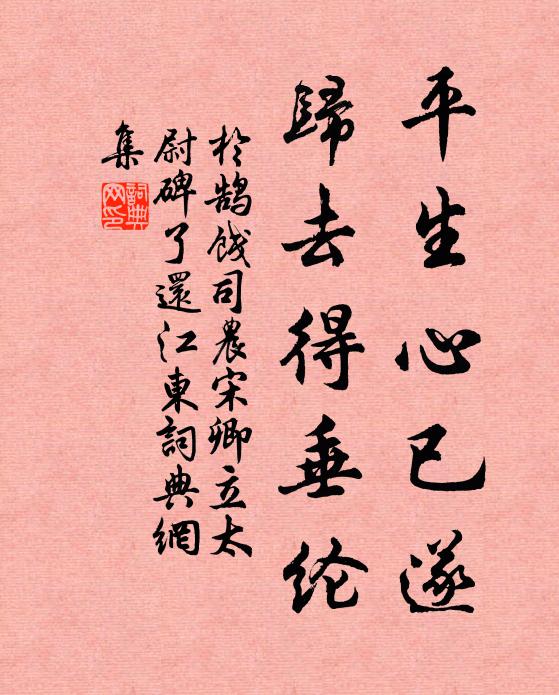 平生心已遂
歸去得垂纶
於鹄餞司農宋卿立太
尉碑了還江東詞典網
集
詞典
网印